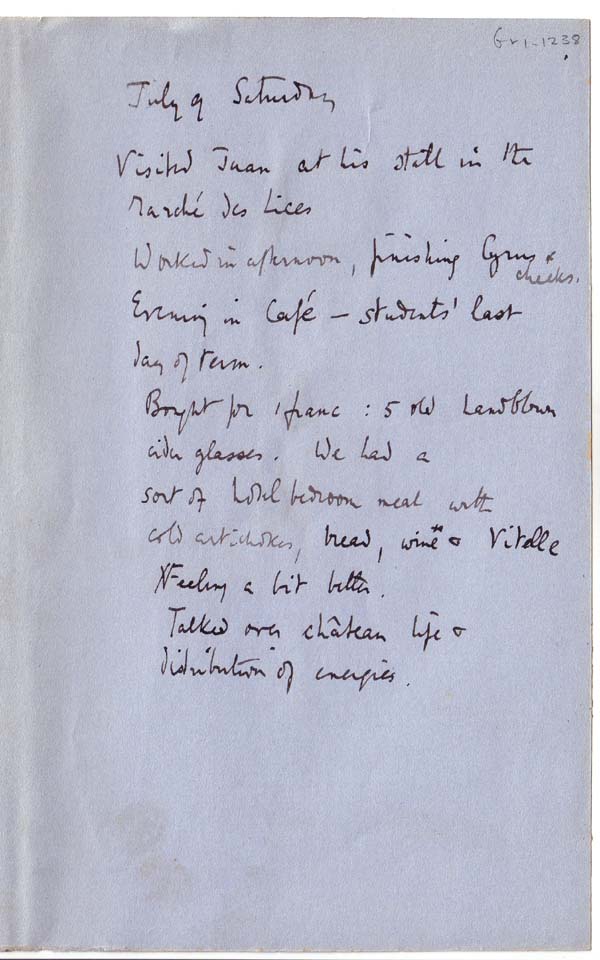 Gr1-1238
July 9 Saturday
Visited Juan at his stall in the
Marché des Lices
Worked in afternoon, finishing Cyrus &
checks.
Evening in Café – students' last
day of term.
Bought for 1 franc : 5 old handblown
cider glasses. We had a
sort of hotel bedroom meal with
cold artichokes, bread, wine & Vitelle
Feeling a bit better.
Talked over château life &
distribution of energies.